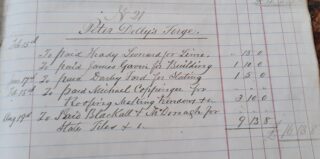 No 21
Peter Dolly's Forge.
Feb 15th To paid Ready Leonard for Lime - 15 0
To paid James Gavin for Building 1 10 0
June 17th To paid Darby Ford for Slating 1 5 0
To paid Michael Coppinger for
Roofing Making Windows &c 3 10 0
Aug 19th To Paid Blackall & McDonagh for
Slate Tiles & c. 9 13 8